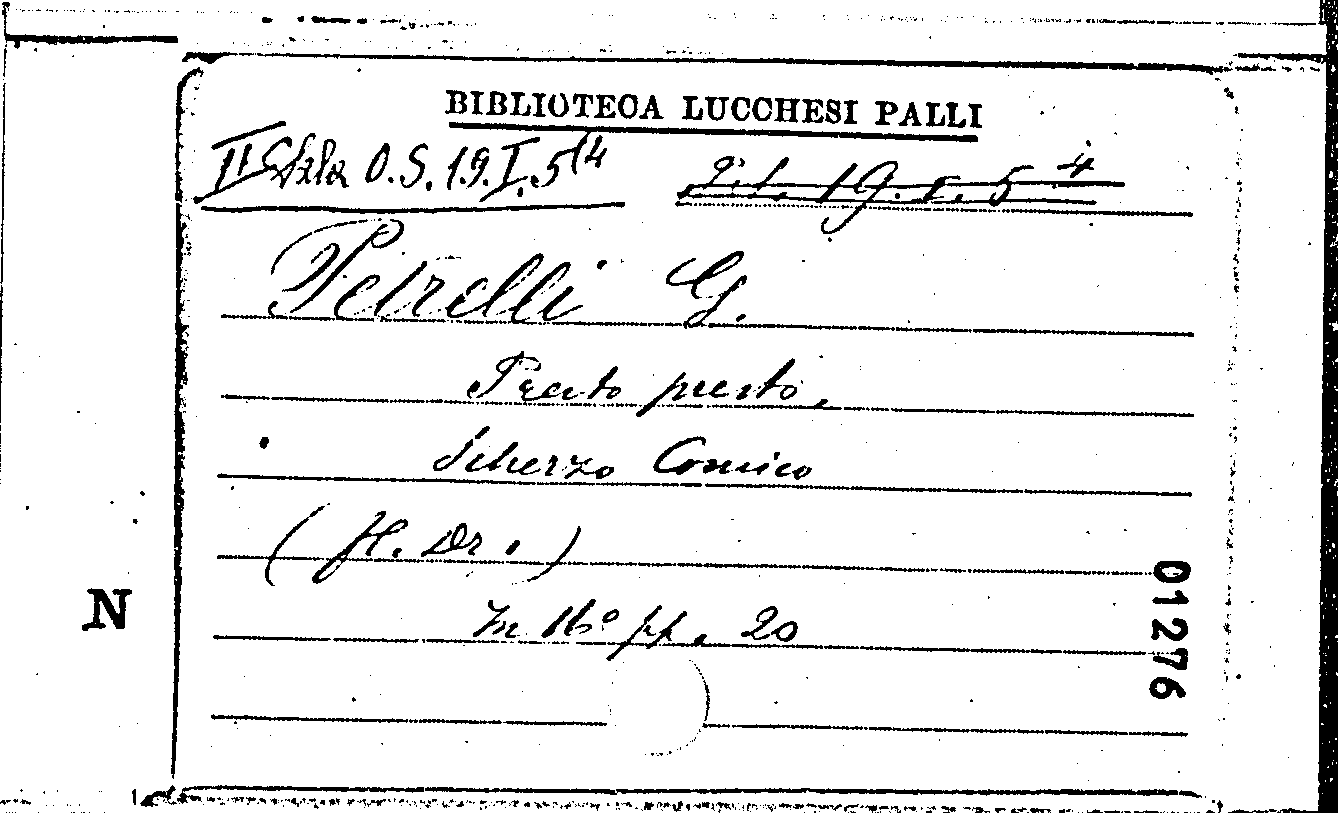 BIBLIOTECA LUCCHESI PALLI
II Sala O.S. 19. I. 5(4 19. I. 5 4
Petrelli G.
presto.
Scherzo Comico
( Dr. )
In 16° pp. 20
N
01276